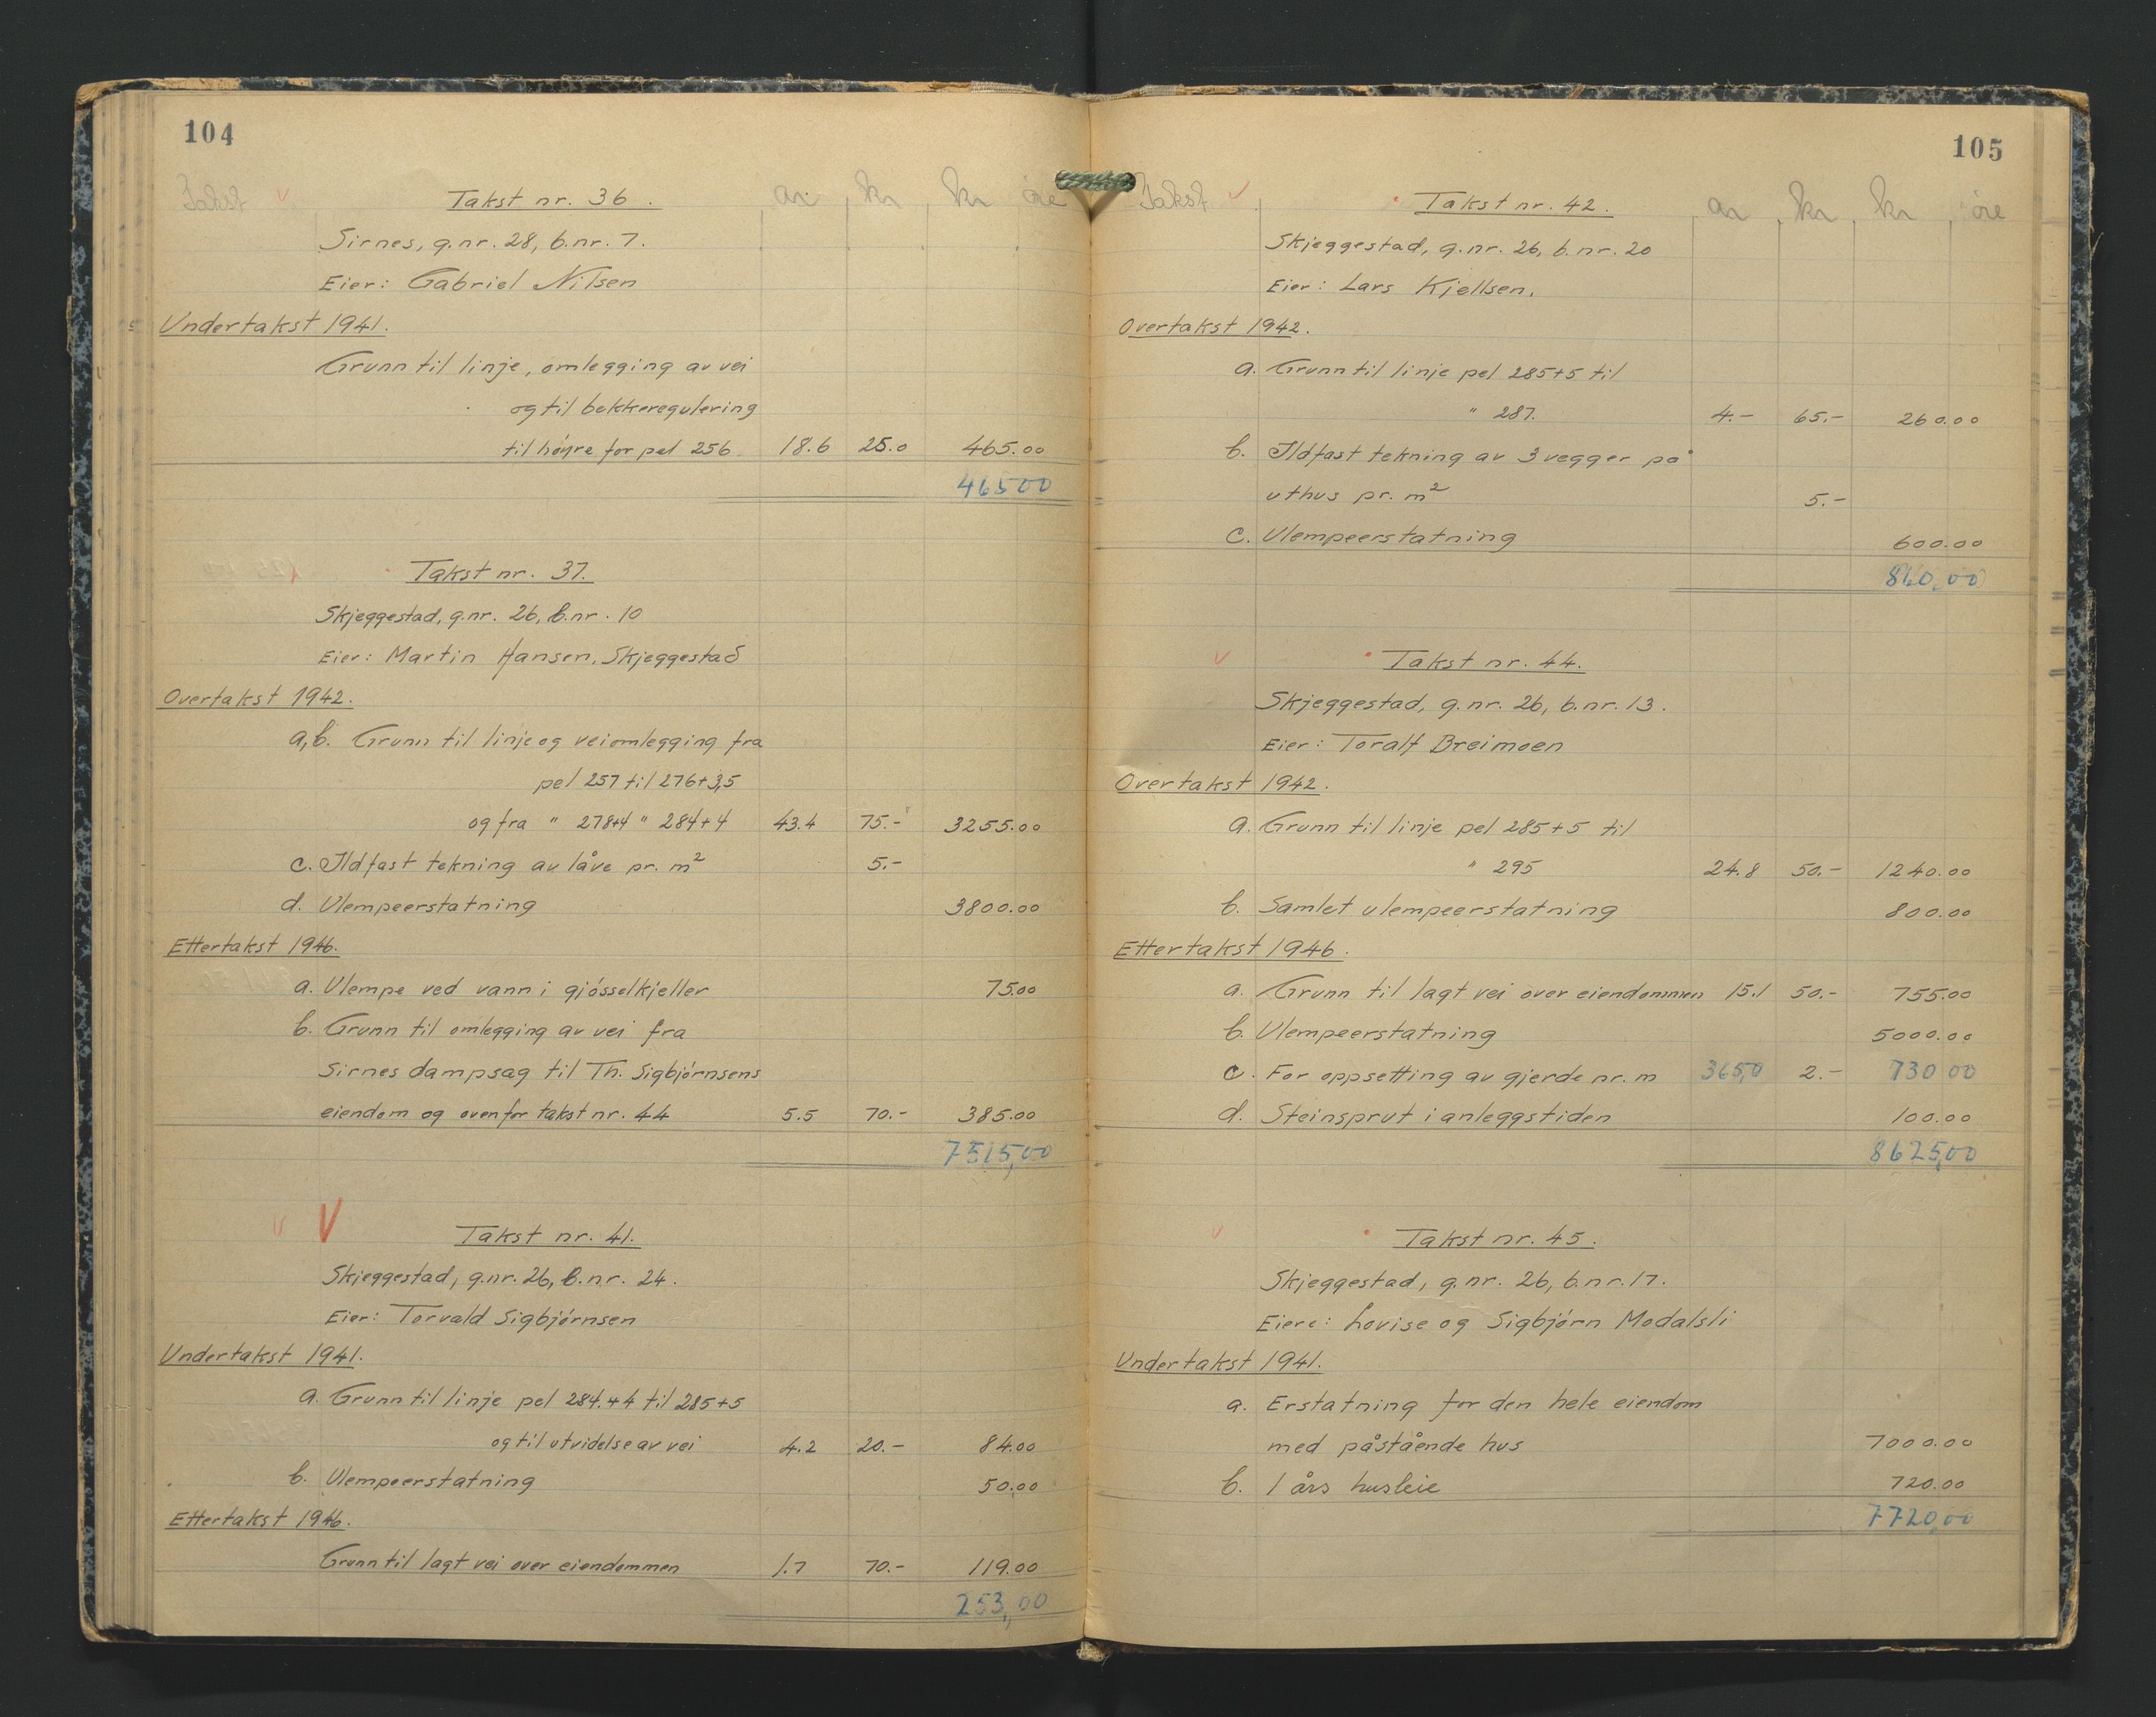 104
Takst ar kr kr øre
Takst nr. 36.
Sirnes, g.nr. 28, b.nr. 7.
Eier: Gabriel Nilsen
Undertakst 1941.
Grunn til linje, omlegging av vei
og til bekkeregulering
til høyre for pel 256. 18.6 25.0 465.00
46500
Takst nr. 37.
Skjeggestad, g.nr. 26, b.nr. 10
Eier: Martin Hansen, Skjeggestad
Overtakst 1942.
a,b. Grunn til linje og veiomlegging fra
pel 257 til 276+3,5
og fra " 278+4 " 284+4 43.4 75.- 3255.00
c. Ildfast tekning av låve pr. m² 5.-
d. Ulempeerstatning 3800.00
Ettertakst 1946.
a. Ulempe ved vann i gjósselkjeller 75.00
b. Grunn til omlegging av vei fra
Sirnes dampsag til Th. Sigbjørnsens
eiendom og ovenfor takst nr. 44 5.5 70.- 385.00
7515,00
V
Takst nr. 41.
Skjeggestad, g.nr. 26, b.nr. 24.
Eier: Torvald Sigbjørnsen
Undertakst 1941.
a. Grunn til linje pel 284.+4 til 285+5
og til utvidelse av vei 4.2 20.- 84.00
b. Ulempeerstatning 50.00
Ettertakst 1946.
Grunn til lagt vei over eiendommen 1.7 70.- 119.00
253,00
105
Takst ar kr kr øre
Takst nr. 42.
Skjeggestad, g.nr. 26, b.nr. 20
Eier: Lars Kjellsen.
Overtakst 1942.
a. Grunn til linje pel 285+5 til
" 287. 4.- 65.- 260.00
b. Ildfast tekning av 3 vegger på
uthus pr. m² 5.-
c. Ulempeerstatning 600.00
860,00
Takst nr. 44.
Skjeggestad, g.nr. 26, b.nr. 13.
Eier: Toralf Breimoen
Overtakst 1942.
a. Grunn til linje pel 285+5 til
" 295 24.8 50.- 1240.00
b. Samlet ulempeerstatning 800.00
Ettertakst 1946.
a. Grunn til lagt vei over eiendommen 15.1 50.- 755.00
b. Ulempeerstatning 5000.00
c. For oppsetting av gjerde nr. m 365,0 2.- 730 00
d. Steinsprut i anleggstiden 100.00
8625,00
Takst nr. 45.
Skjeggestad, g.nr. 26, b.nr. 17.
Eiere: Lovise og Sigbjørn Modalsli
Undertakst 1941.
a. Erstatning for den hele eiendom
med påstående hus 7000.00
b. 1 års husleie 720.00
7720,00